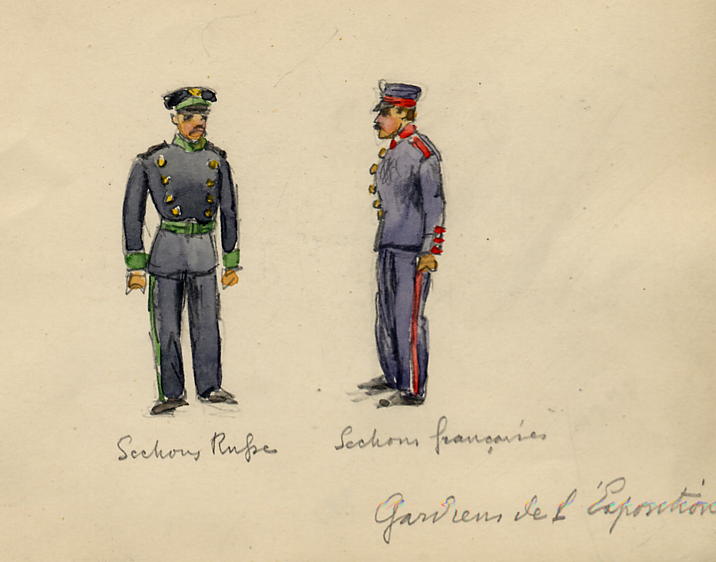 Sections Russe
Sections françaises
Gardiens de l'Exposition